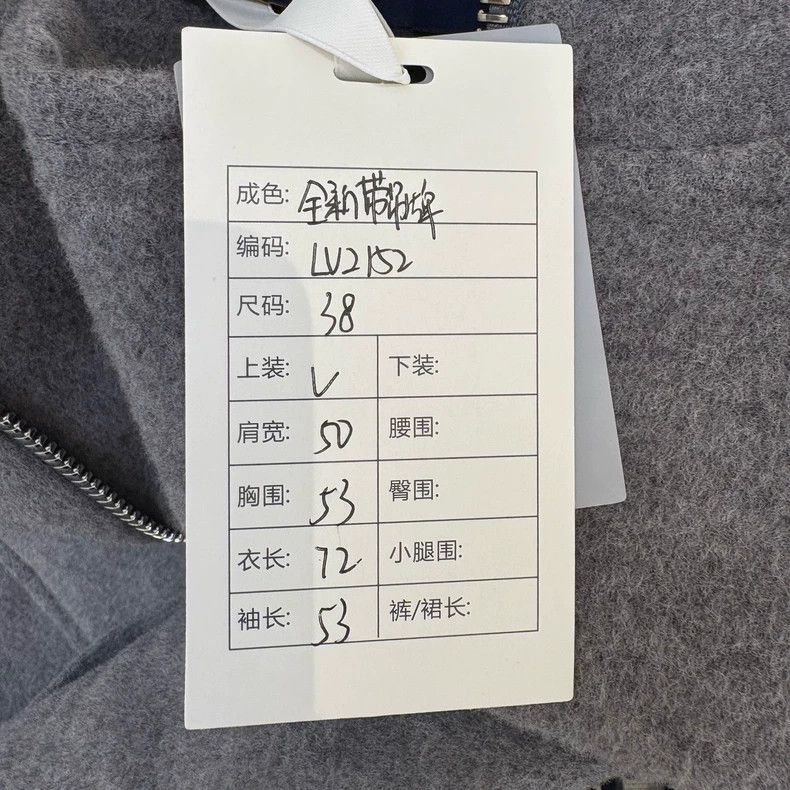 成色: 全新带吊牌
编码: LV2152
尺码: 38
上装: V 下装:
肩宽: 50 腰围:
胸围: 53 臀围:
衣长: 72 小腿围:
袖长: 53 裤/裙长: